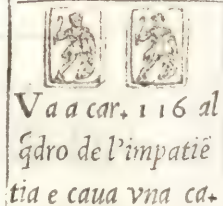 Va a car. 116 al
q̃dro de l'impatiẽ
tia e caua vna ca.